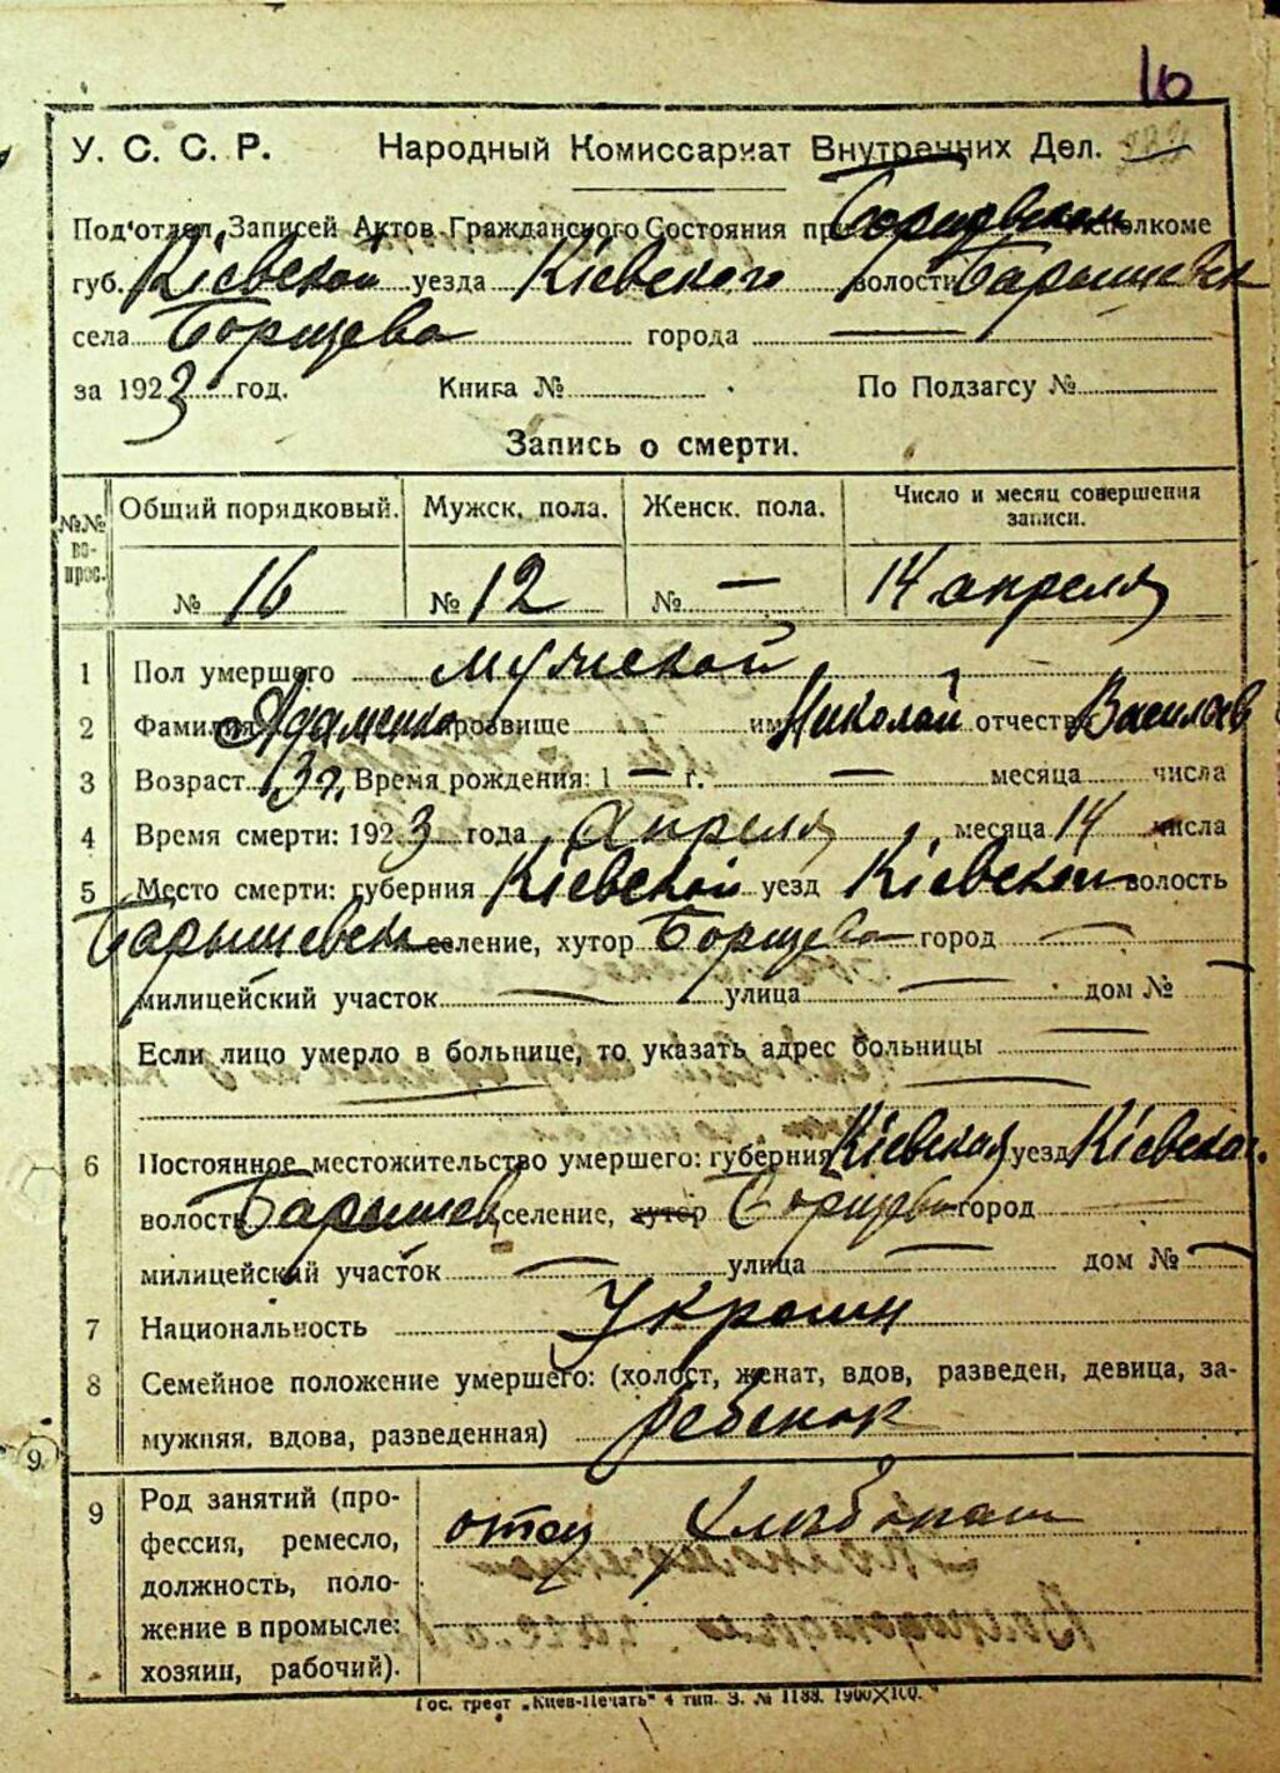 16
У. С. С. Р. Народный Комиссариат Внутренних Дел.
Под'отдел Записей Актов Гражданского Состояния при Борщевском Исполкоме
губ. Кіевской уезда Кіевского волости Барышевск
села Борщева города —
за 1923 год. Книга № По Подзагсу №
Запись о смерти.
№№ вопрос. Общий порядковый. Мужск. пола. Женск. пола. Число и месяц совершения записи.
№ 16 № 12 № — 14 апреля
1 Пол умершего мужской
2 Фамилия Адаменко прозвище имя Николай отчество Васильев
3 Возраст 13 г. Время рождения: 1 — г. — месяца числа
4 Время смерти: 1923 года Апреля месяца 14 числа
5 Место смерти: губерния Кіевской уезд Кіевской волость
Барышевск селение, хутор Борщева город —
милицейский участок — улица — дом № —
Если лицо умерло в больнице, то указать адрес больницы —
6 Постоянное местожительство умершего: губерния Кіевская уезд Кіевской
волость Барышев селение, хутор Борщева город —
милицейский участок — улица — дом № —
7 Национальность Украин
8 Семейное положение умершего: (холост, женат, вдов, разведен, девица, за-
мужняя, вдова, разведенная) ребенок
9.
9 Род занятий (про-
фессия, ремесло,
должность, поло-
жение в промысле:
хозяин, рабочий).
отец хлебопаш
Гос. трест „Киев-Печать" 4 тип. З. № 1188. 1900×100.